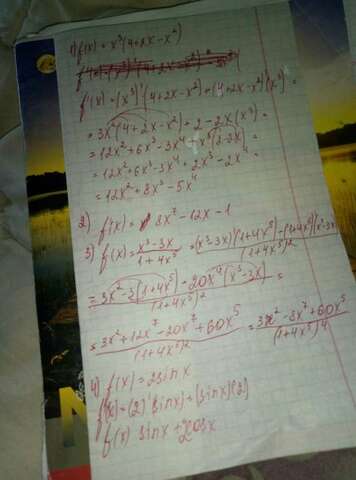 1) f(x) = x³(4+2x-x²)
f'(x) = (x³)'(4+2x-x²)+(4+2x-x²)'(x³)=
= 3x²(4+2x-x²)+2-2x(x³)=
= 12x²+6x³-3x⁴+x³(2-2x)=
= 12x²+6x³-3x⁴+2x³-2x⁴=
= 12x²+8x³-5x⁴
2) f'(x) = 8x⁷-12x-1
3) f(x) = x³-3x / 1+4x⁵ = (x³-3x)'(1+4x⁵)-(1+4x⁵)'(x³-3x) / (1+4x⁵)²
= 3x²-3(1+4x⁵)-20x⁴(x³-3x) / (1+4x⁵)² =
= 3x²+12x⁷-20x⁷+60x⁵ / (1+4x⁵)² = 3x²-8x⁷+60x⁵ / (1+4x⁵)⁴
4) f(x) = 2sinx
f'(x) = (2)'(sinx)+(sinx)'(2)
f(x) sinx+2cosx